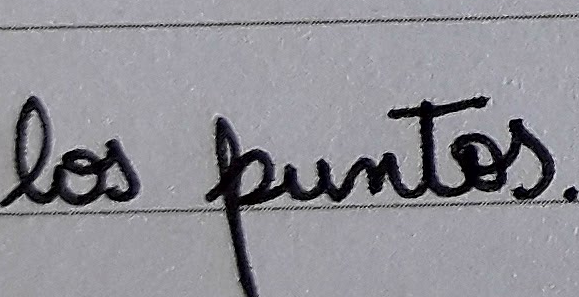 los puntos.